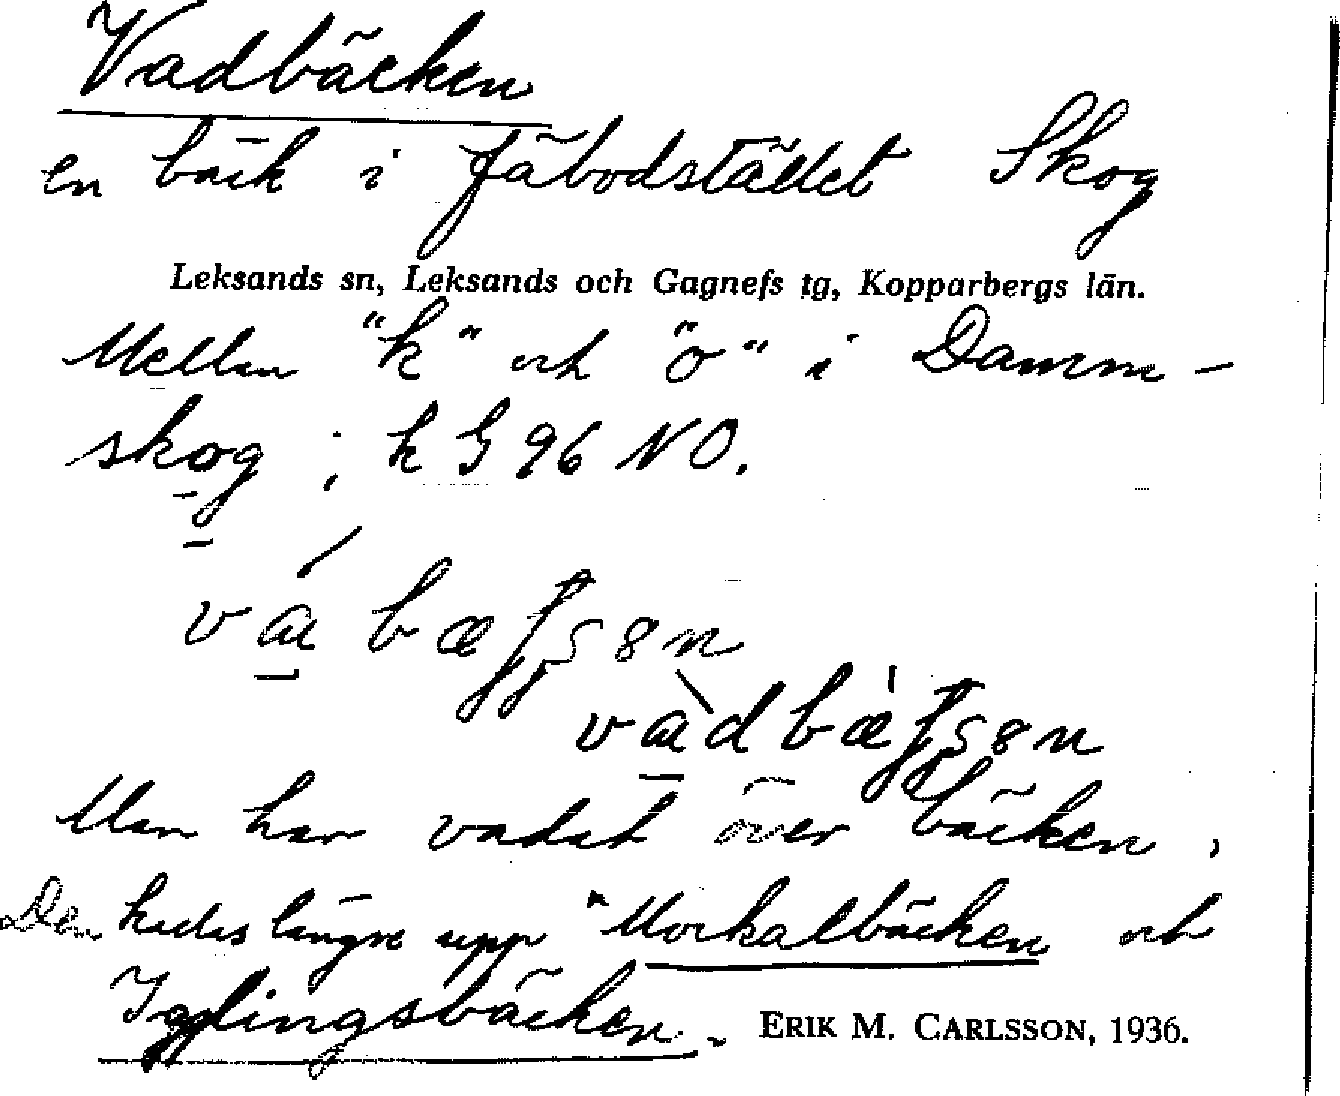 Vadbäcken
en bäck i fäbodstället Skog
Leksands sn, Leksands och Gagnefs tg, Kopparbergs län.
Mellan "k" och "o" i Damm-
skog; k G 96 NO.
Man har vadat över bäcken,
Den kallas längre upp "Morkalbäcken och
Igglingsbäcken. ERIK M. CARLSSON, 1936.